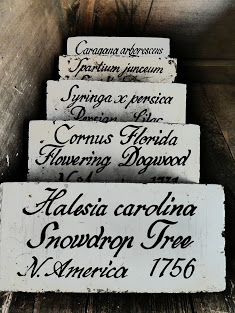 Caragana arborescens
Spartium junceum
Syringa x persica
Persian Lilac
Cornus Florida
Flowering Dogwood
N. 1731
Halesia carolina
Snowdrop Tree
N. America 1756